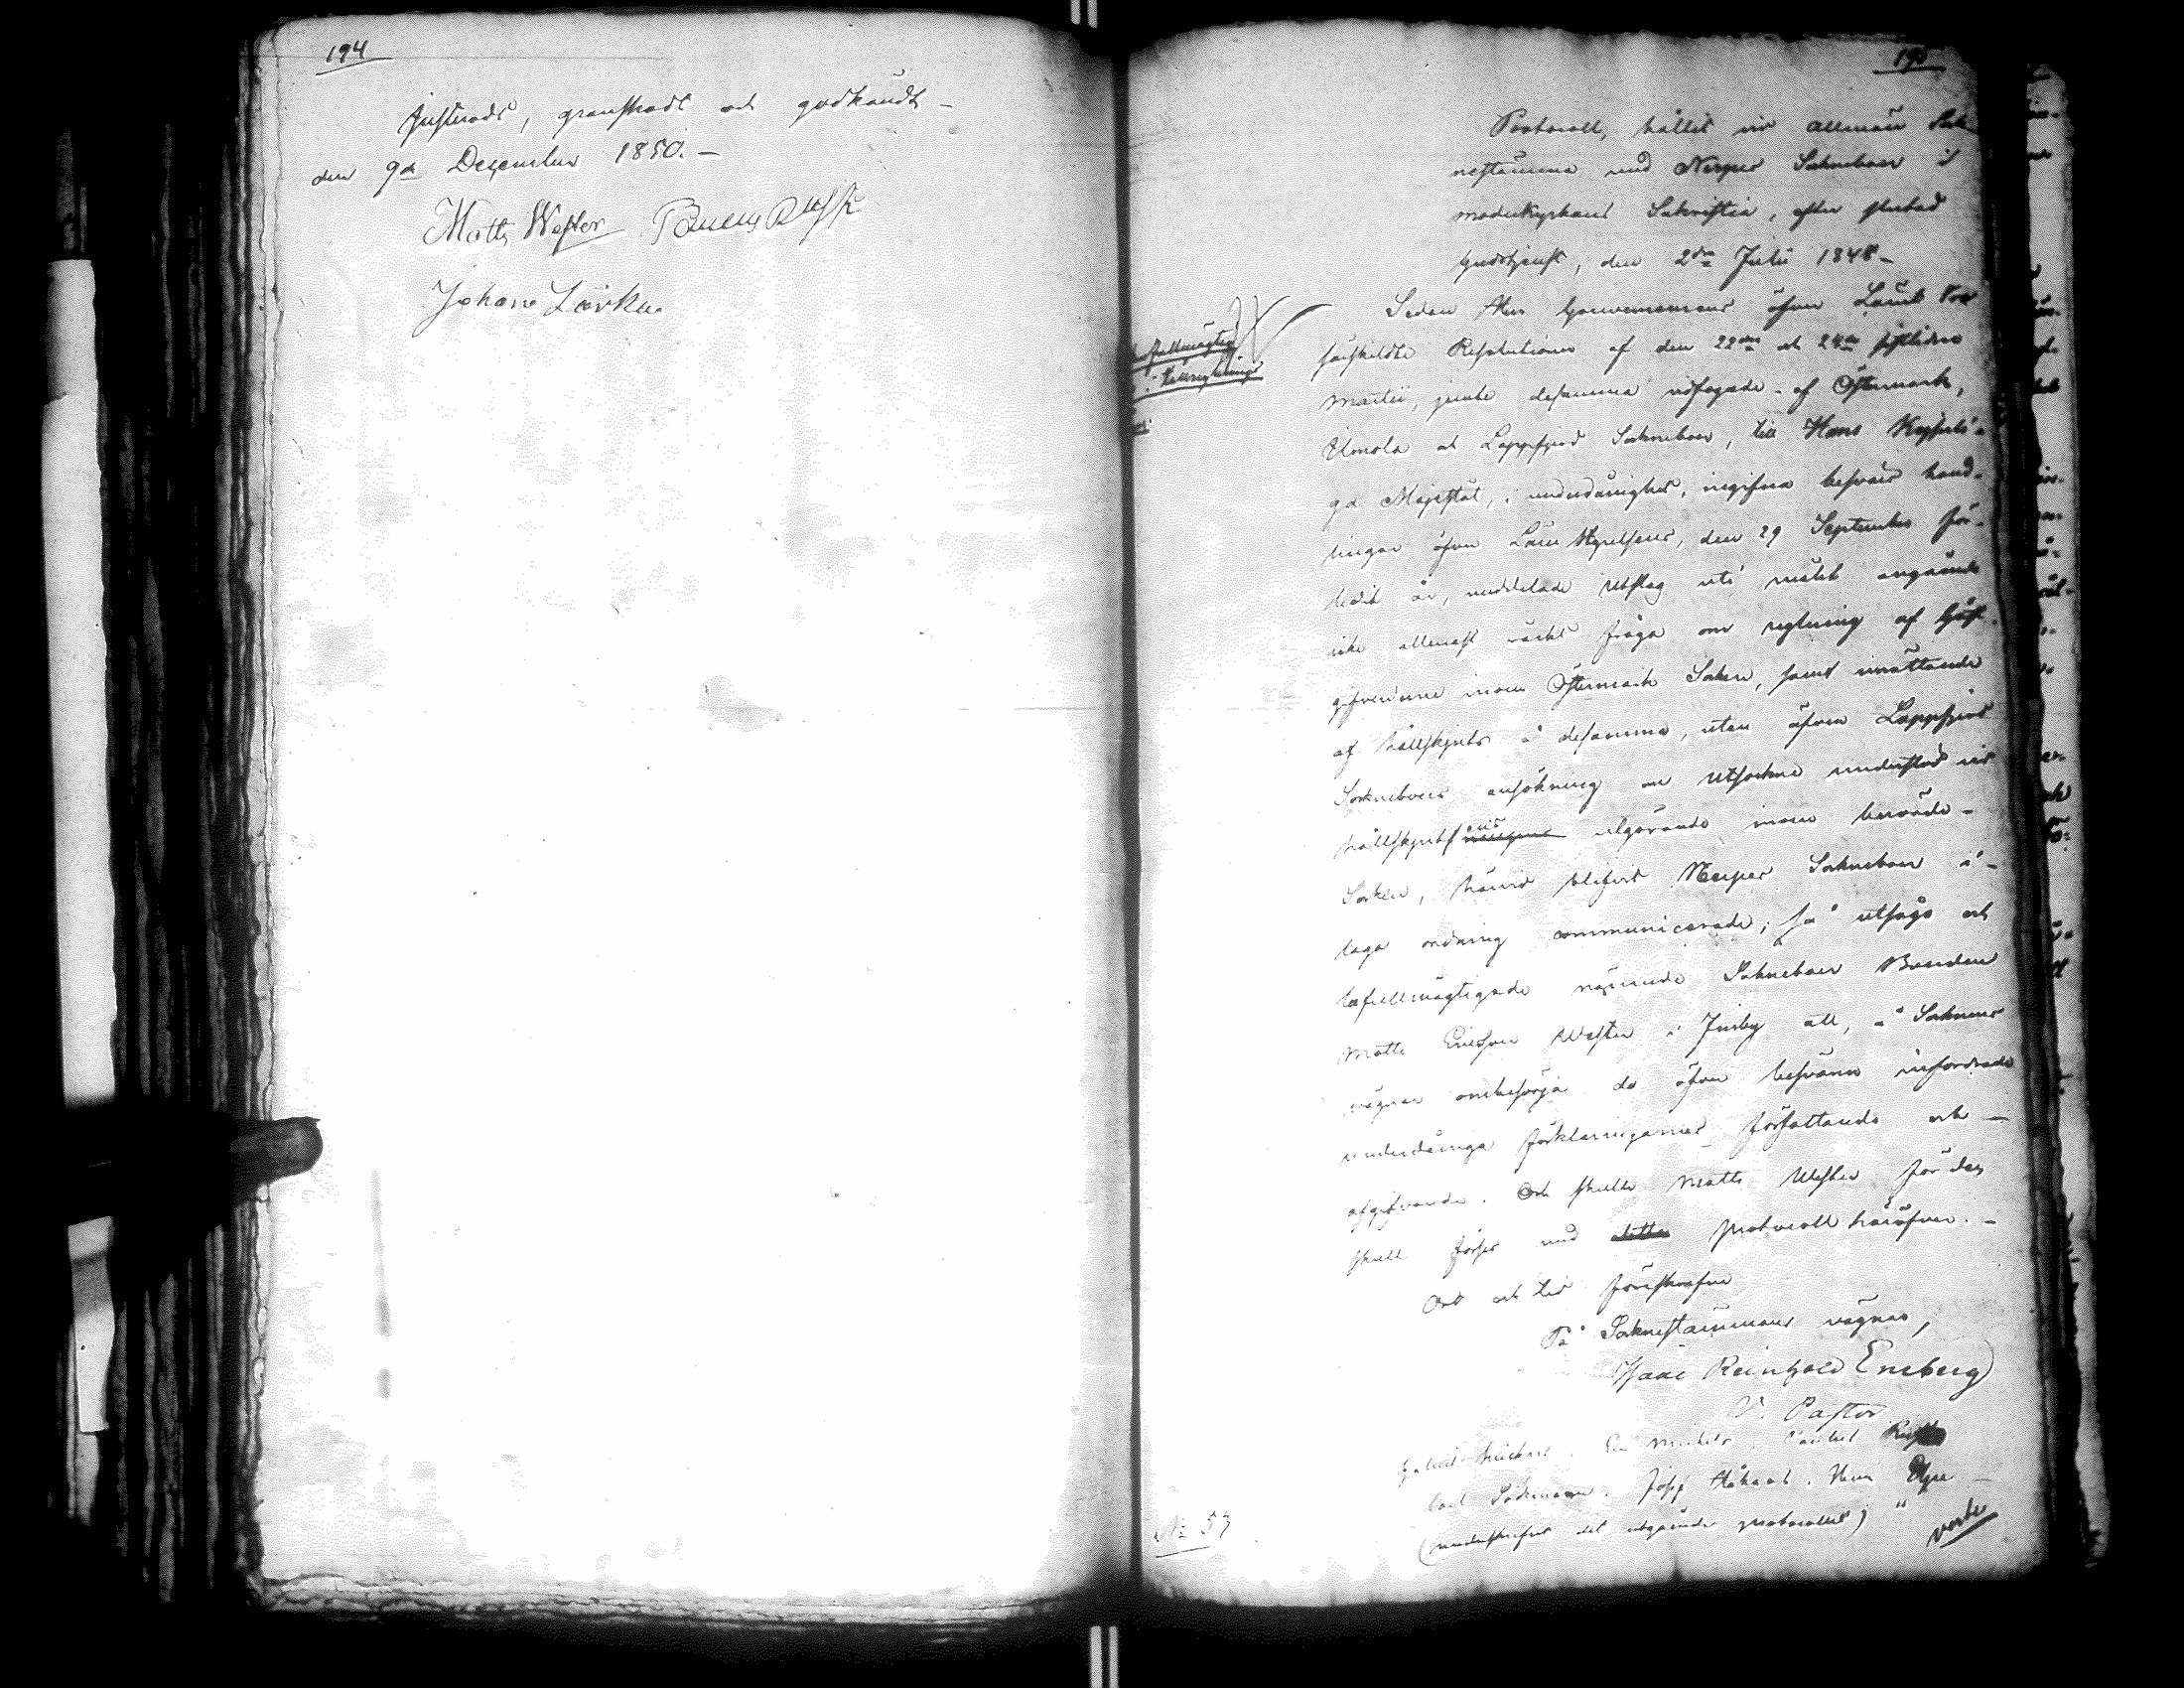 194
Justerads, granskadt och godkändt -
den 9de December 1850. -
Matts Wester
Johan
195
Protocoll, hållit vid allmän Sok
nestämma med Nerpes Sokneboer i
moderkyrkans Sakristia, efter slutad
Gudstjenst, den 2dra Julii 1848 -
Sedan Herr Gouverneurens öfver Länet tvä
särskildte Resolutioner af den 22dra och 24de sistlidne
Martii, jemte desamma vidfogade - af Östermark,
Ilmola och Lappfjerd Sokneboer, till Hans Kejserli-
ga Majestät, i underdånighet, ingifna besvärs hand-
lingar öfver Läne Styrelsens, den 29 September för-
ledit år, meddelade Utslag uti målet angående
icke allenast väckt fråga om reglering af Gäst-
gifverierne inom Östermark Soken, samt inrättande
af hållskjuts å desamma, utan äfven Lappfjerd
Sokneboers ansökning om Utsockne understöd vid
hållskjuts utgörande inom berörde -
Soken, härvid blifvit Nerpes Sokneboer i -
laga ordning communicerade; så utsågo och
befullmägtigade nämnde Sokneboer Bonden
Matts Ericsson Wester i Finby att, å Soknens
vägnar ombesörja de öfver besvären infordrade
underdåniga förklaringarnes författande och -
afgifvande. Och skulle Matts Wester för den
skull förses med protocoll häröfver. -
Ort och tid föreskrefne
På Soknestämmans vägnar,
Isaac Reinhold Eneberg
V. Pastor
Carl Josef Håkans.
(underskrifvit det utgående protocollet) "
verte
No 57